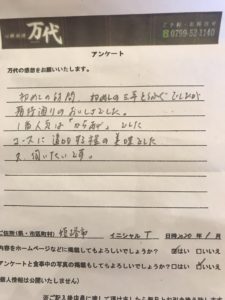 万代
ご予約・お問合せ
0799-52-1140
アンケート
万代の感想をお願いいたします。
初めての訪問、初めての三年とらふぐでしたが
評判通りのおいしさでした
1番人気は「から揚げ」でした
コースに
の美味でした
又 伺いたいです。
ご住所(県・市区町村) 姫路市 イニシャル T 日時2020年 1月
内容をホームページなどに掲載してもよろしいでしょうか？ ☑はい □いいえ
アンケートと食事中の写真の掲載もしてもよろしいでしょうか？ □はい ☑いいえ
個人情報は公開いたしません)
※ご記入後店員に